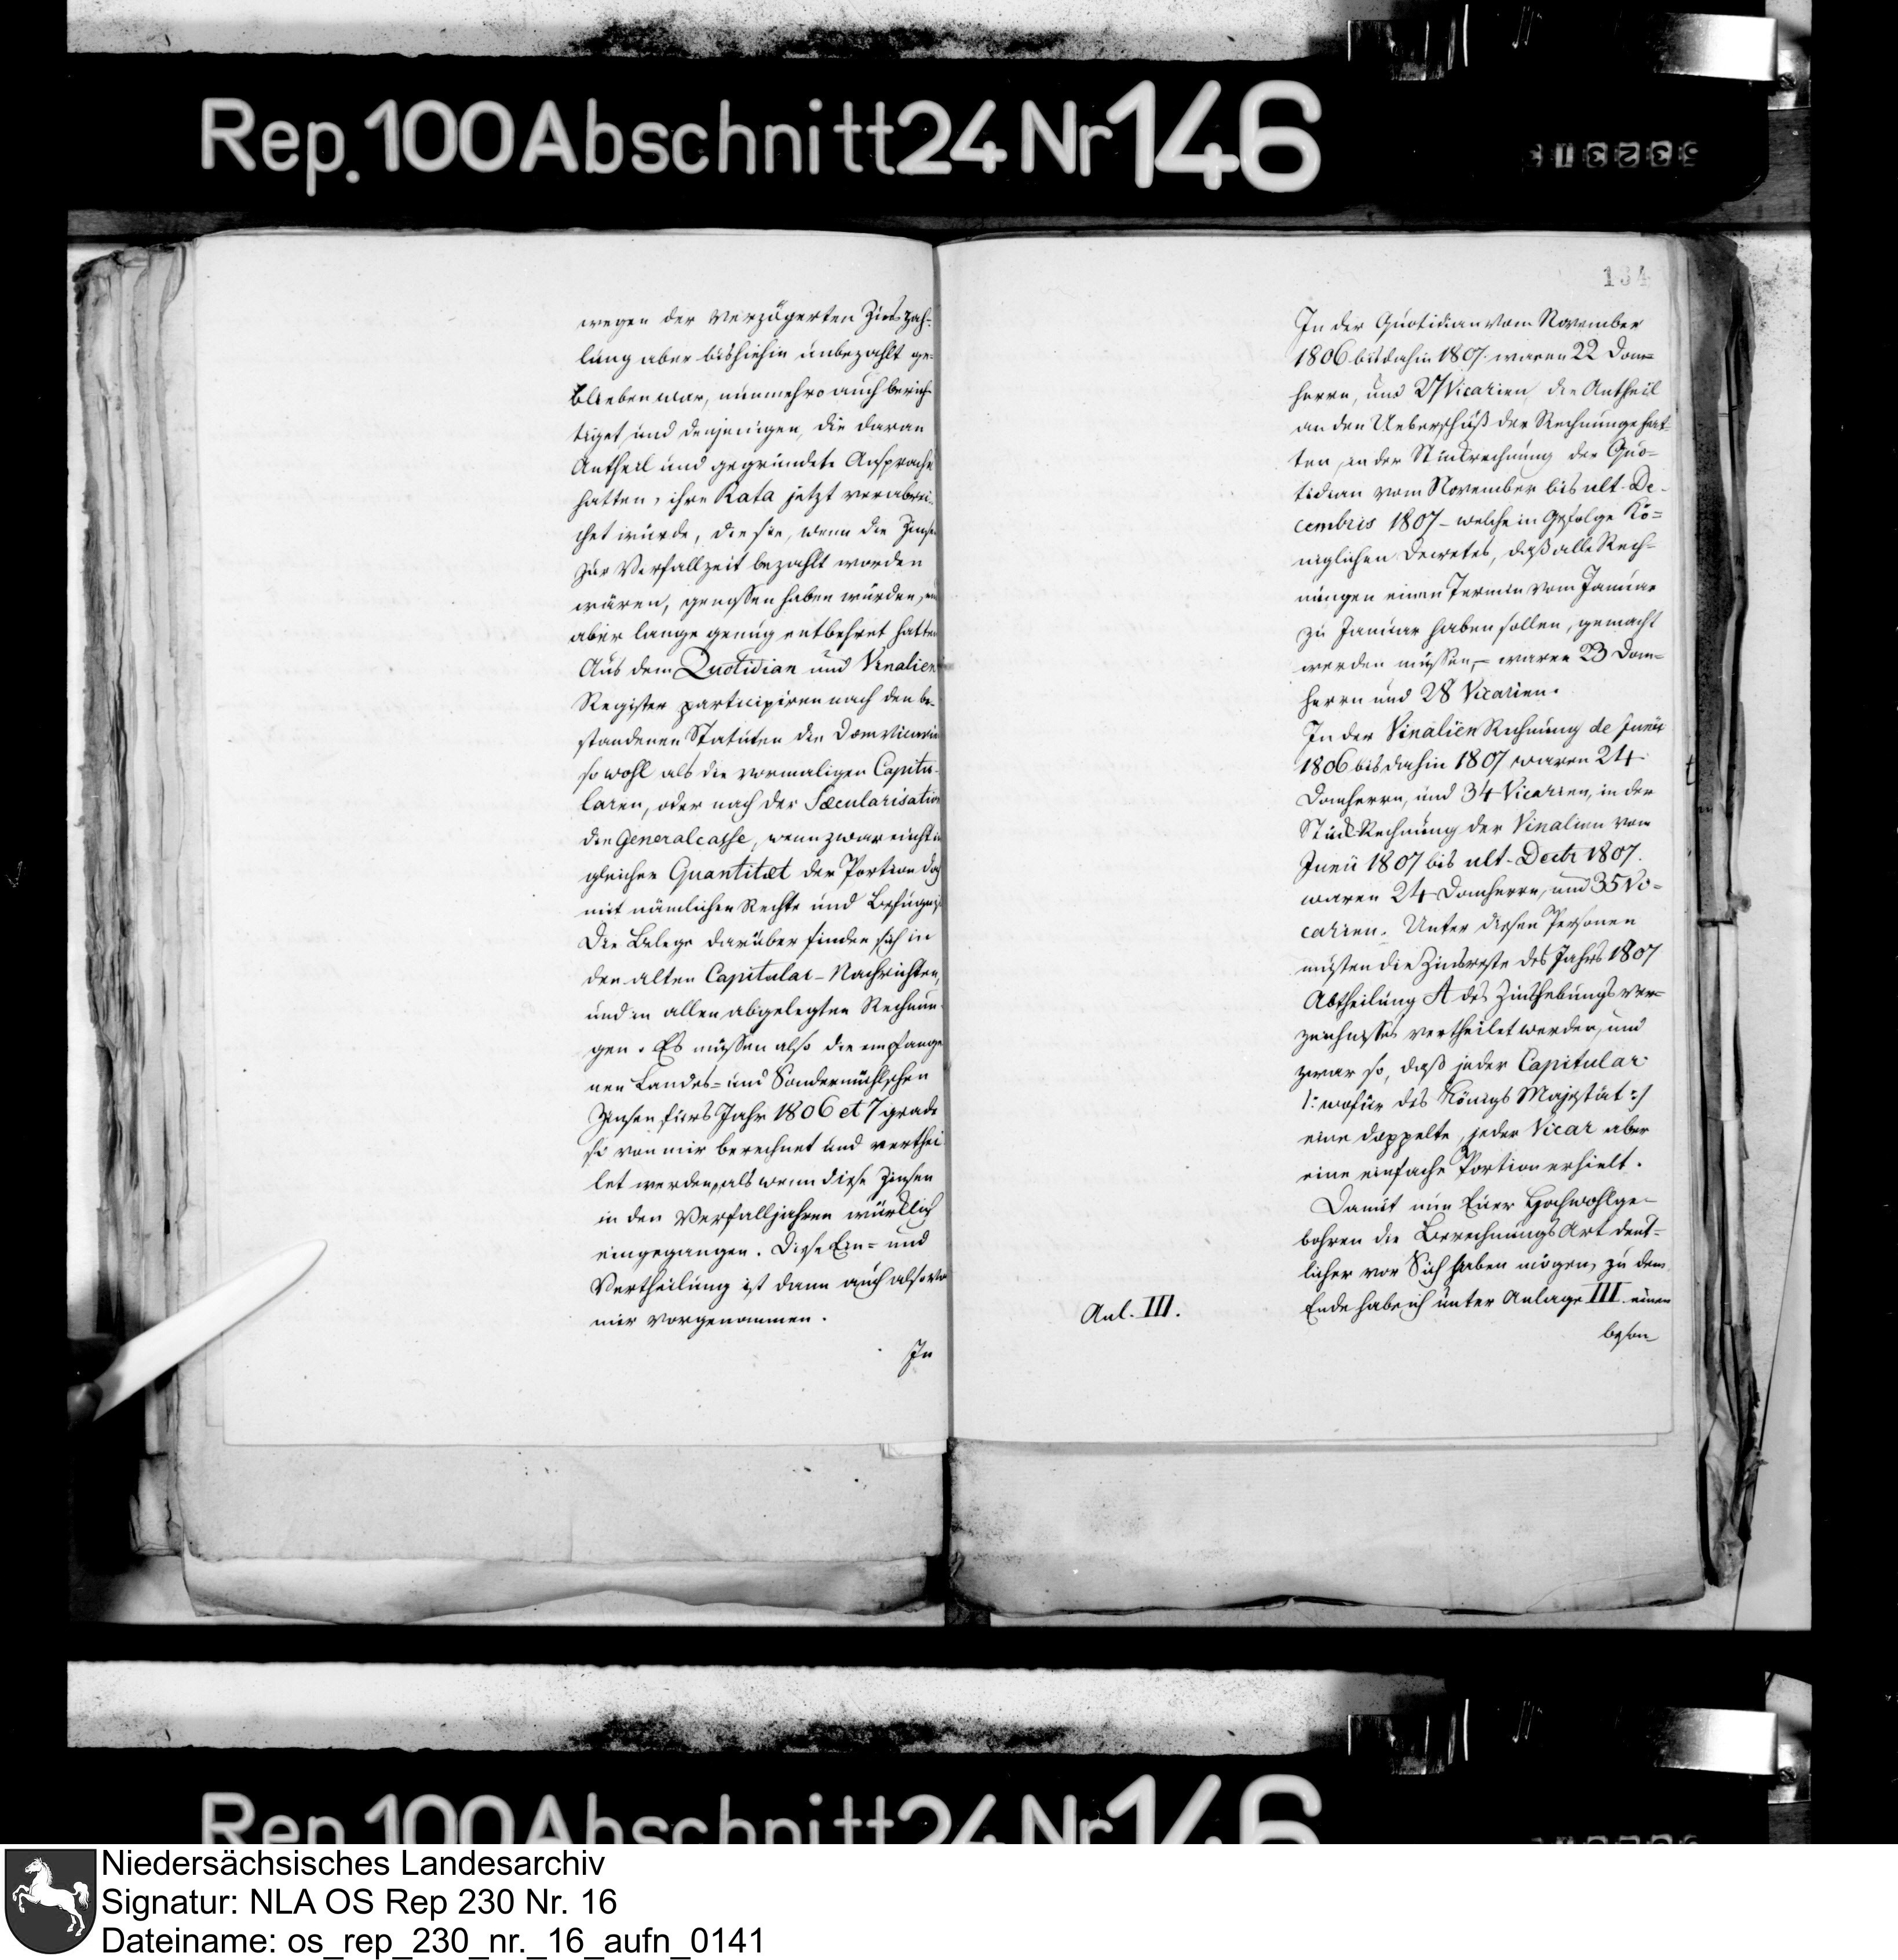 Rep. 100 Abschnitt 24 Nr 146
wegen der verzögerten Zins-Zah-
lung aber bishiehin unbezahlt ge-
blieben war, nunmehro auch berich-
tiget und denjenigen, die daran
Antheil und gegründete Ansprache
hatten, ihre Rata jetzt verabrei-
chet würde, die sie, wenn die Zinsen
zur Verfallzeit bezahlt worden
wären, genossen haben würden, nun
aber lange genug entbehret hatten
Aus dem Quotidian und Vinalien
Register participiren nach den be-
standenen Statuten die Domvicarien
so wohl als die vormaligen Capitu-
laren, oder nach der Sæcularisation
die Generalcasse, wenn zwar nicht in
gleicher Quantitæt der Portion doch
mit nämlichen Rechte und Befugniß
Die Belege darüber finden sich in
den alten Capitular-Nachrichten,
und in allen abgelegten Rechnun-
gen. Es müssen also die empfange
nen Landes- und Sondermühlschen
Zinsen fürs Jahr 1806 et 7 grade
so von mir berechnet und verthei
let werden, als wenn diese Zinsen
in den Verfalljahren würklich
eingegangen. Diese Ein- und
Vertheilung ist dann auch also von
mir vorgenommen.
In
134
In der Quotidian vom November
1806 bis dahin 1807 waren 22 Dom-
herrn, und 27 Vicarien, die Antheil
an den Ueberschuß der Rechnunge hat-
ten, in der Stückrechnung der Quo-
tidian vom November bis ult. De-
cembris 1807 - welche in Gefolge Kö-
niglichen Decretes, daß alle Rech-
nungen einen Termin vom Januar
zu Januar haben sollen, gemacht
werden müssen, - waren 23 Dom-
herrn und 28 Vicarien.
In der Vinalien Rechnung de Junii
1806 bis dahin 1807 waren 24
Domherrn, und 34 Vicarien, in der
Stück Rechnung der Vinalien vom
Junii 1807 bis ult. Decbr 1807.
waren 24 Domherrn, und 35 Vi-
carien. Unter diesen Personen
müsten die Zinsreste des Jahrs 1807
Abtheilung A des Zinshebungsver-
zeichnisses vertheilet werden, und
zwar so, daß jeder Capitular
/: wofür des Königs Majestät :/
eine doppelte, jeder Vicar aber
eine einfache Portion erhielt.
Damit nun Euer Hochwohlge-
bohren die Berechnungs Art deut-
licher vor Sich haben mögen, zu dem
Anl. III.
Ende habe ich unter Anlage III. einen
beson
Rep. 100 Abschnitt 24 Nr 146
Niedersächsisches Landesarchiv
Signatur: NLA OS Rep 230 Nr. 16
Dateiname: os_rep_230_nr._16_aufn_0141